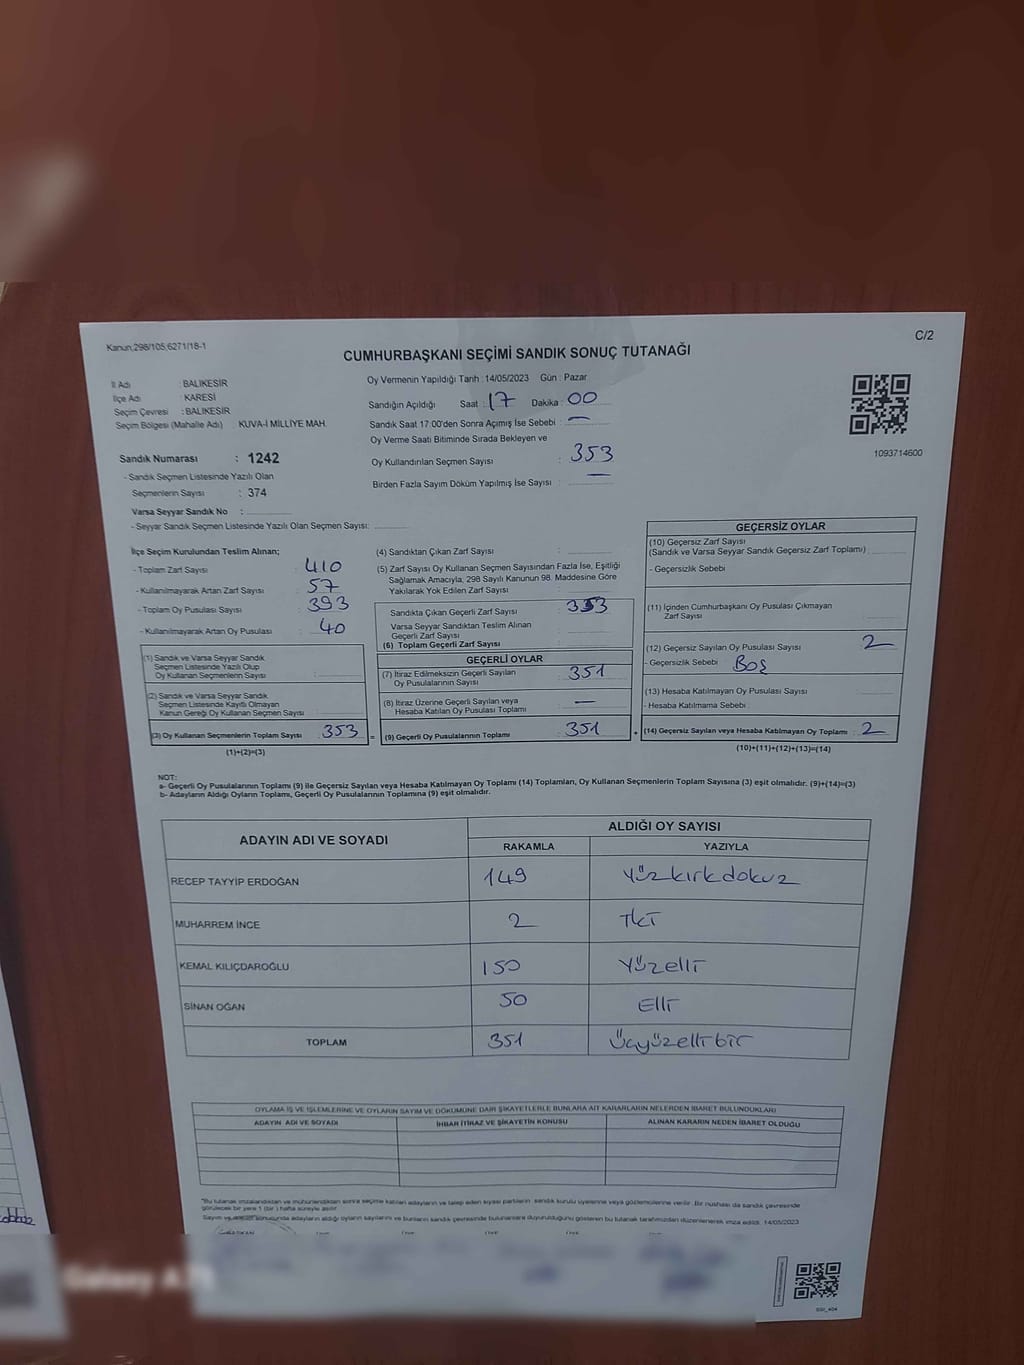 Kanun;298/105;6271/18-1
C/2
CUMHURBAŞKANI SEÇİMİ SANDIK SONUÇ TUTANAĞI
İl Adı : BALIKESİR
İlçe Adı : KARESİ
Seçim Çevresi : BALIKESİR
Seçim Bölgesi (Mahalle Adı) KUVA-İ MİLLİYE MAH.
Sandık Numarası : 1242
- Sandık Seçmen Listesinde Yazılı Olan
Seçmenlerin Sayısı : 374
Varsa Seyyar Sandık No :
- Seyyar Sandık Seçmen Listesinde Yazılı Olan Seçmen Sayısı:
Oy Vermenin Yapıldığı Tarih :14/05/2023 Gün : Pazar
Sandığın Açıldığı Saat : 17 Dakika : 00
Sandık Saat 17:00'den Sonra Açımış İse Sebebi : —
Oy Verme Saati Bitiminde Sırada Bekleyen ve
Oy Kullandırılan Seçmen Sayısı : 353
Birden Fazla Sayım Döküm Yapılmış İse Sayısı : —
1093714600
İlçe Seçim Kurulundan Teslim Alınan;
- Toplam Zarf Sayısı : 410
- Kullanılmayarak Artan Zarf Sayısı : 57
- Toplam Oy Pusulası Sayısı : 393
- Kullanılmayarak Artan Oy Pusulası : 40
(1) Sandık ve Varsa Seyyar Sandık
Seçmen Listesinde Yazılı Olup
Oy Kullanan Seçmenlerin Sayısı :
(2) Sandık ve Varsa Seyyar Sandık
Seçmen Listesinde Kayıtlı Olmayan
Kanun Gereği Oy Kullanan Seçmen Sayısı :
(3) Oy Kullanan Seçmenlerin Toplam Sayısı : 353
(1)+(2)=(3)
=
(4) Sandıktan Çıkan Zarf Sayısı :
(5) Zarf Sayısı Oy Kullanan Seçmen Sayısından Fazla İse, Eşitliği
Sağlamak Amacıyla, 298 Sayılı Kanunun 98. Maddesine Göre
Yakılarak Yok Edilen Zarf Sayısı :
Sandıkta Çıkan Geçerli Zarf Sayısı : 353
Varsa Seyyar Sandıktan Teslim Alınan
Geçerli Zarf Sayısı :
(6) Toplam Geçerli Zarf Sayısı :
GEÇERLİ OYLAR
(7) İtiraz Edilmeksizin Geçerli Sayılan
Oy Pusulalarının Sayısı : 351
(8) İtiraz Üzerine Geçerli Sayılan veya
Hesaba Katılan Oy Pusulası Toplamı : —
(9) Geçerli Oy Pusulalarının Toplamı : 351
+
GEÇERSİZ OYLAR
(10) Geçersiz Zarf Sayısı
(Sandık ve Varsa Seyyar Sandık Geçersiz Zarf Toplamı)
- Geçersizlik Sebebi
(11) İçinden Cumhurbaşkanı Oy Pusulası Çıkmayan
Zarf Sayısı
(12) Geçersiz Sayılan Oy Pusulası Sayısı 2
- Geçersizlik Sebebi Boş
(13) Hesaba Katılmayan Oy Pusulası Sayısı
- Hesaba Katılmama Sebebi
(14) Geçersiz Sayılan veya Hesaba Katılmayan Oy Toplamı : 2
(10)+(11)+(12)+(13)=(14)
NOT:
a- Geçerli Oy Pusulalarının Toplamı (9) ile Geçersiz Sayılan veya Hesaba Katılmayan Oy Toplamı (14) Toplamları, Oy Kullanan Seçmenlerin Toplam Sayısına (3) eşit olmalıdır. (9)+(14)=(3)
b- Adayların Aldığı Oyların Toplamı, Geçerli Oy Pusulalarının Toplamına (9) eşit olmalıdır.
ADAYIN ADI VE SOYADI ALDIĞI OY SAYISI
RAKAMLA YAZIYLA
RECEP TAYYİP ERDOĞAN 149 Yüzkırkdokuz
MUHARREM İNCE 2 İki
KEMAL KILIÇDAROĞLU 150 Yüzelli
SİNAN OĞAN 50 Elli
TOPLAM 351 Üçyüzellibir
OYLAMA İŞ VE İŞLEMLERİNE VE OYLARIN SAYIM VE DÖKÜMÜNE DAİR ŞİKAYETLERLE BUNLARA AİT KARARLARIN NELERDEN İBARET BULUNDUKLARI
ADAYIN ADI VE SOYADI İHBAR İTİRAZ VE ŞİKAYETİN KONUSU ALINAN KARARIN NEDEN İBARET OLDUĞU
*Bu tutanak imzalandıktan ve mühürlendikten sonra seçime katılan adayların ve talep eden siyasi partilerin sandık kurulu üyelerine veya gözlemcilerine verilir. Bir nüshası da sandık çevresinde
görülecek bir yere 1 (bir) hafta süreyle asılır.
Sayım ve sonucunda adayların aldığı oyların sayılarını ve bunların sandık çevresinde bulunanlara duyurulduğunu gösteren bu tutanak tarafımızdan düzenlenerek imza edildi. 14/05/2023
Galaxy